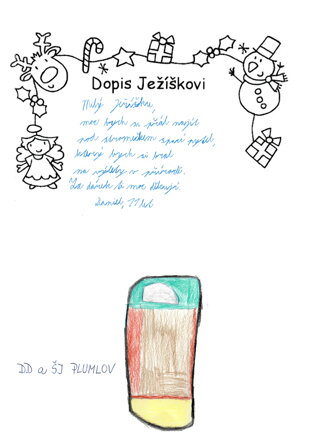 Dopis Ježíškovi
Milý Ježíšku,
moc bych si přál najít
pod stromečkem spací pytel,
který bych si bral
na výlety v přírodě.
Za dárek ti moc děkuji.
Daniel, 11 let
DD a ŠJ PLUMLOV